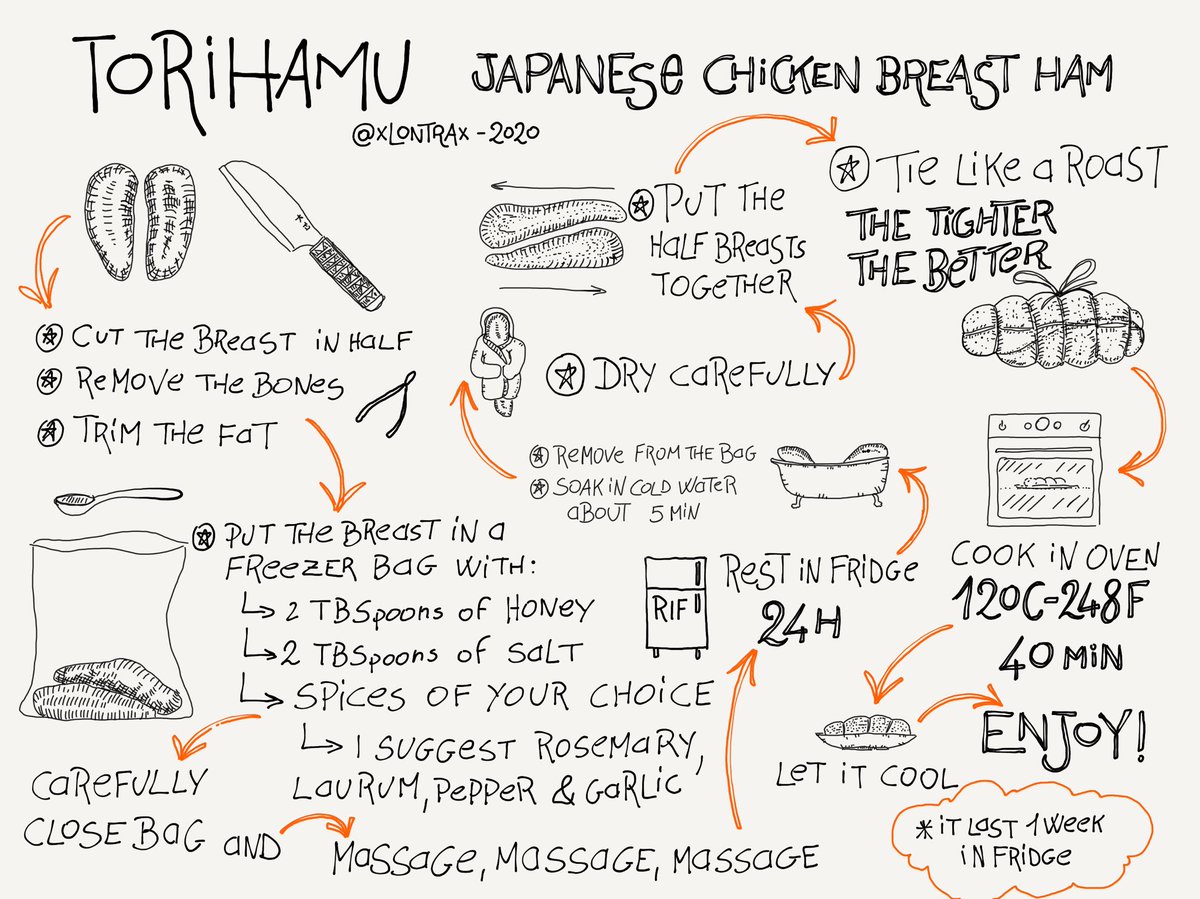 TORIHAMU
JAPANESE CHICKEN BREAST HAM
@XLONTRAX - 2020
CUT THE BREAST IN HALF
REMOVE THE BONES
TRIM THE FAT
PUT THE BREAST IN A
FREEZER BAG WITH:
2 TBSPOONS OF HONEY
2 TBSPOONS OF SALT
SPICES OF YOUR CHOICE
I SUGGEST ROSEMARY,
LAURUM, PEPPER & GARLIC
CAREFULLY
CLOSE BAG AND
MASSAGE, MASSAGE, MASSAGE
RIF
REST IN FRIDGE
24H
REMOVE FROM THE BAG
SOAK IN COLD WATER
ABOUT 5 MIN
DRY CAREFULLY
PUT THE
HALF BREASTS
TOGETHER
TIE LIKE A ROAST
THE TIGHTER
THE BETTER
COOK IN OVEN
120C-248F
40 MIN
LET IT COOL
ENJOY!
*IT LAST 1 WEEK
IN FRIDGE